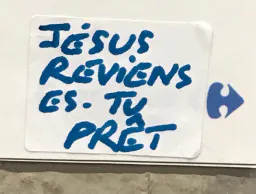 JÉSUS
REVIENS
ES-TU
PRÊT